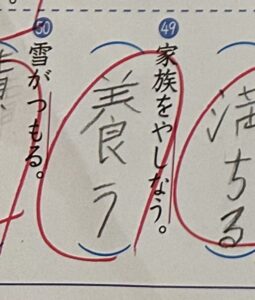 満ちる
㊾ 家族をやしなう。
養う
㊿ 雪がつもる。